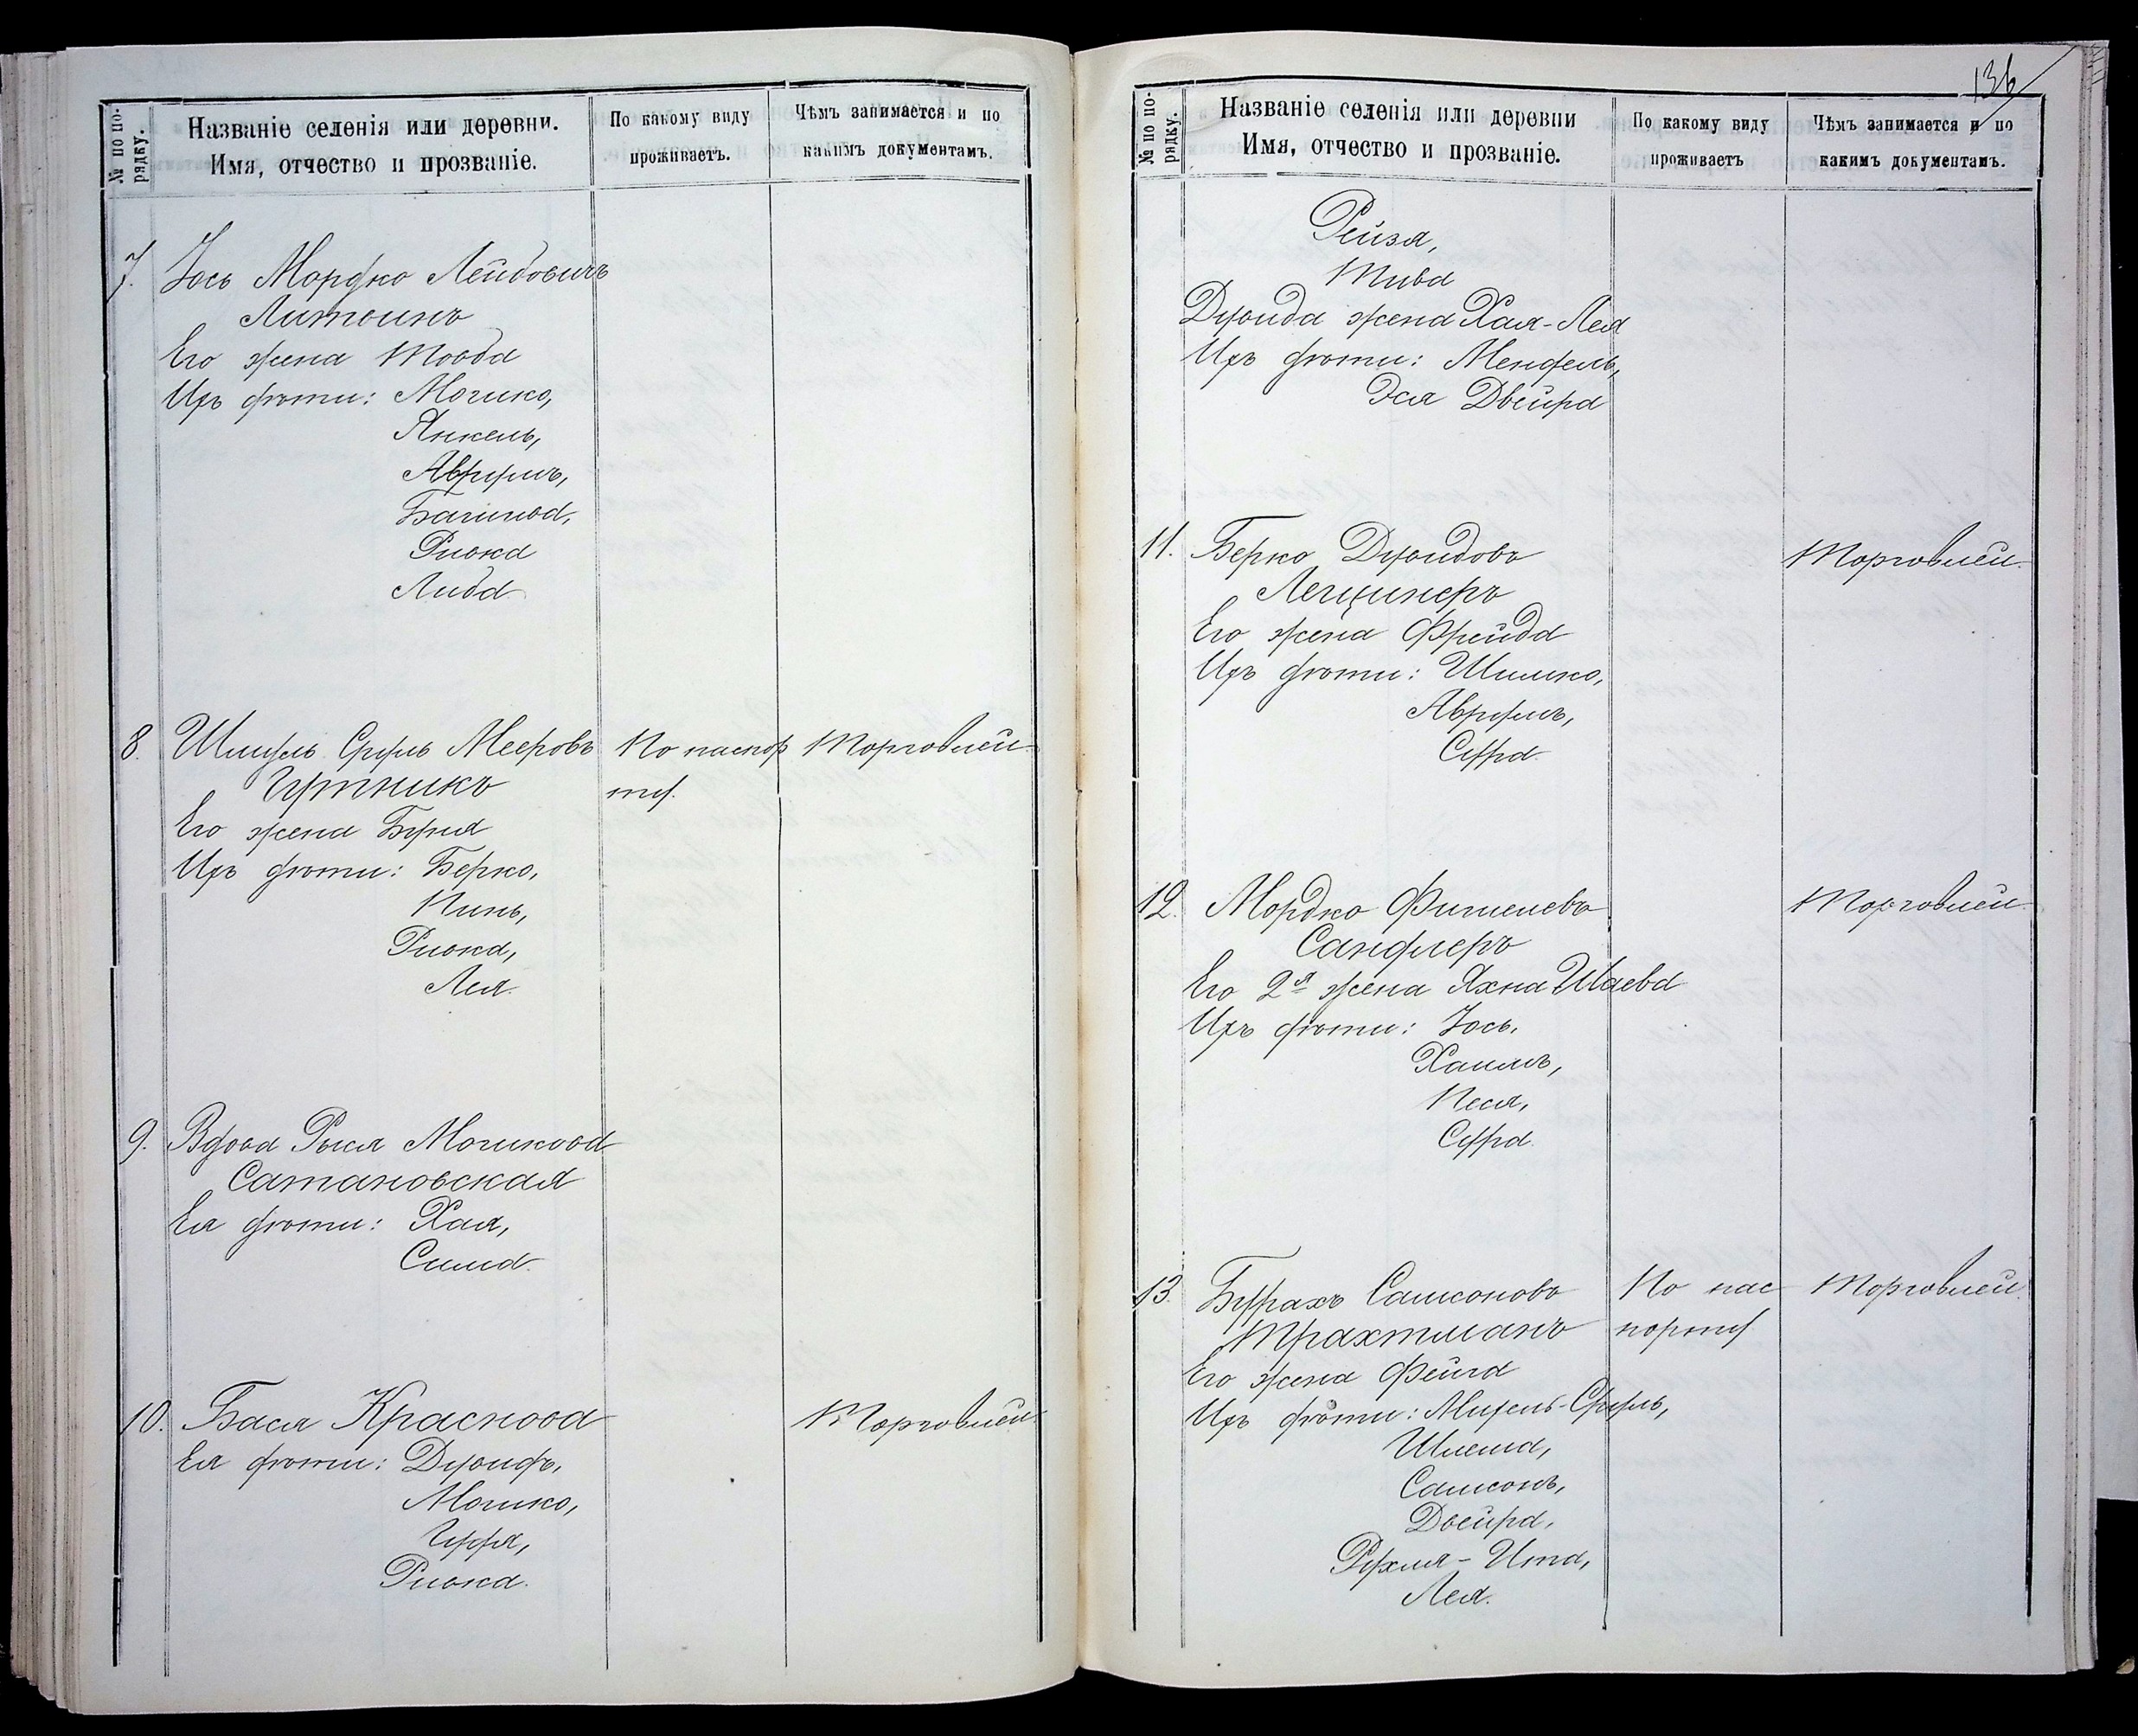 № по по-
рядку.
Названіе селенія или деревни.
Имя, отчество и прозваніе.
По какому виду
проживаетъ.
Чѣмъ занимается и по
какимъ документамъ.
7. Іось Мордко Лейбовичъ
Литвинъ
Его жена Товба
Ихъ дѣти: Мошко,
Янкель,
Аврумъ,
Башива,
Ривка
Либа
8. Шмуль Сруль Мееровъ По паспор Торговлей
Гутникъ
ту.
Его жена Буня
Ихъ дѣти: Берко,
Пинь,
Ривка,
Лея.
9. Вдова Рыся Мошкова
Сатановская
Ея дѣти: Хая,
Сима.
10. Бася Краснова Торговлей
Ея дѣти: Дувидъ,
Мошко,
Ривка.
136
№ по по-
рядку.
Названіе селенія или деревни
Имя, отчество и прозваніе.
По какому виду
проживаетъ
Чѣмъ занимается и по
какимъ документамъ.
Рейзя,
Тива
Дувида жена Хая-Лея
Ихъ дѣти: Мендель,
Эся Двейра
11. Берко Дувидовъ Торговлей
Лещинеръ
Его жена Фрейда
Ихъ дѣти: Шимко,
Аврумъ,
Сура
12. Мордко Фишелевъ Торговлей
Сандлеръ
Его 2я жена Яхна Шаева
Ихъ дѣти: Іось,
Хаимъ,
Песя,
Сура.
13. Бурахъ Самсоновъ По пас Торговлей
Трахтманъ порту
Его жена Фейга
Ихъ дѣти: Михель-Сруль,
Шлема,
Самсонъ,
Двейра,
Рухля-Ита,
Лея.